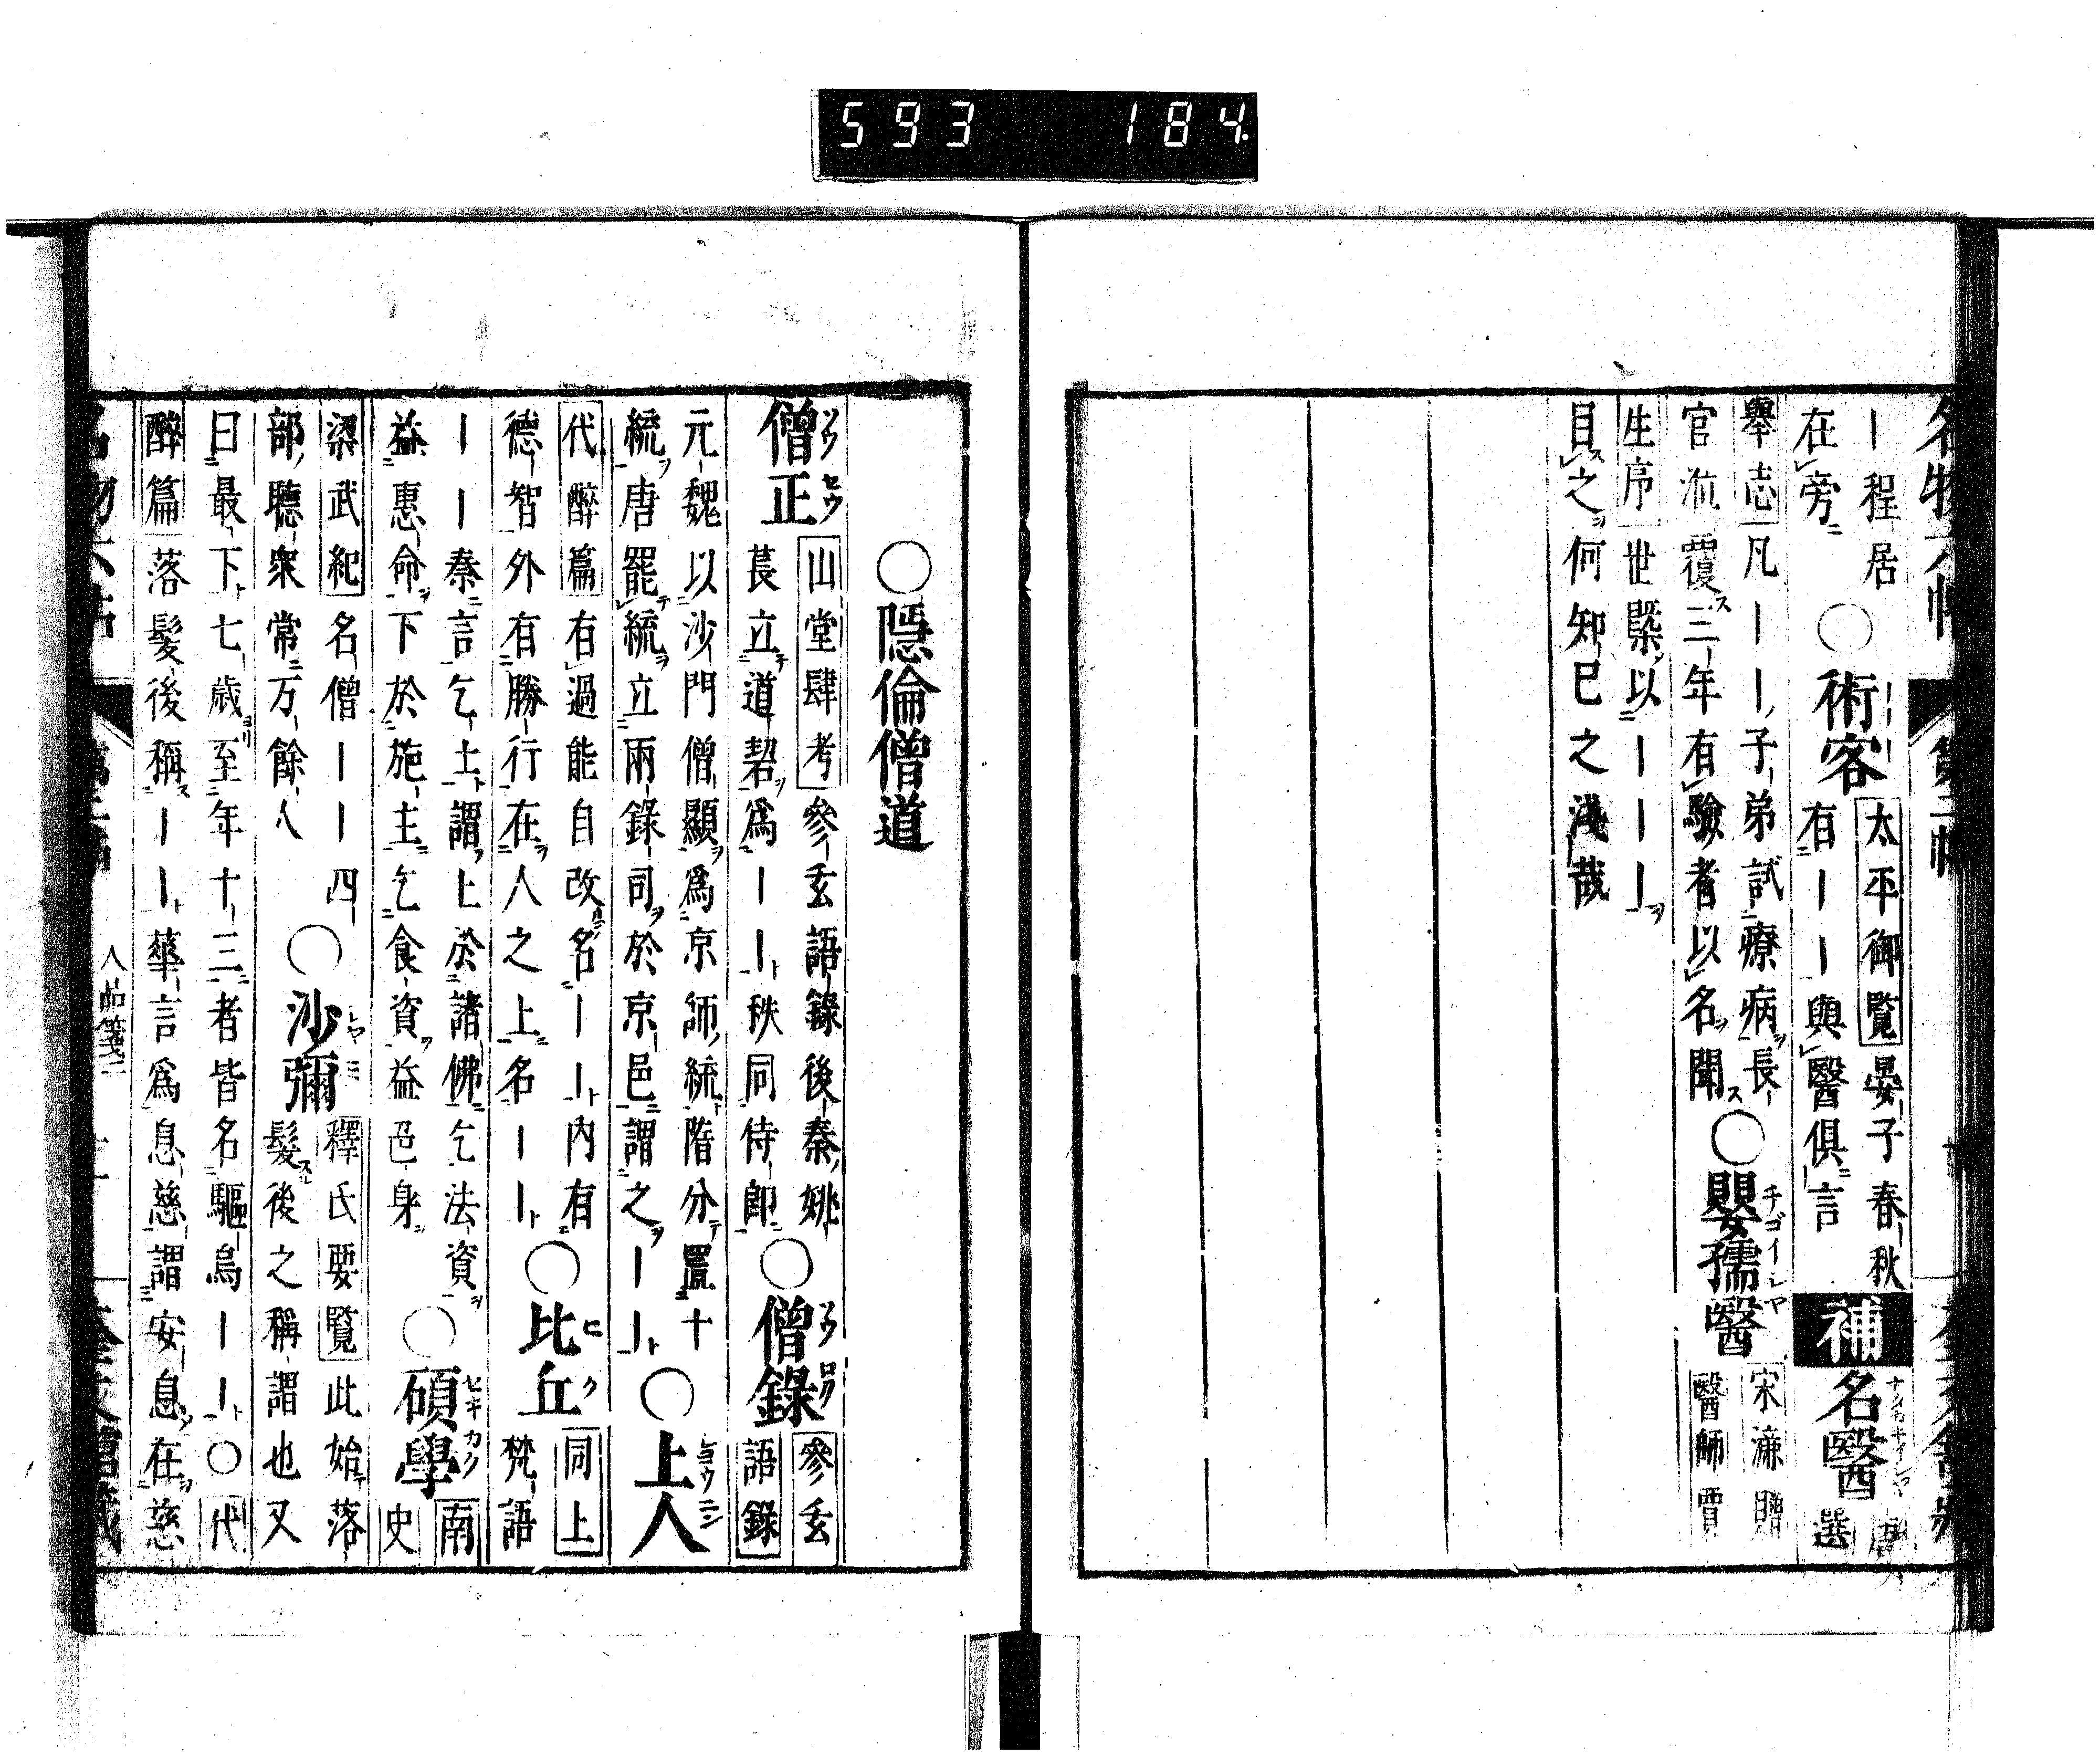 593 184
｜程居
在旁
○術客
太平御覧晏子春秋
有｜｜與醫俱言
補
名醫
選
擧志凡｜｜｜子弟試療病長
官㳅覆三年有驗者以名聞
○嬰孺醫
チゴイシヤ
宋濂贈
醫師賈
生序世槩以｜｜｜
目之何知巳之淺哉
○隱倫僧道
僧正
ソウセウ
山堂肆考參玄語錄後秦姚
萇立道䂮爲｜｜秩同侍郎
○僧錄
ソウロク
參玄
語錄
元魏以沙門僧顯爲京師統隋分置十
統唐罷統立兩錄司於京邑謂之｜｜
○上人
シヨウニン
代醉篇有過能自改名｜｜內有
德智外有勝行在人之上名｜｜
○比丘
ヒク
同上
梵語
｜｜秦言乞士謂上於諸佛乞法資
益惠命下於施主乞食資益色身
○碩學
セキガク
南
史
梁武紀名僧｜｜四
部聽衆常万餘人
○沙彌
シヤミ
釋氏要覧此始落
髮後之稱謂也又
曰最下七歲至年十三者皆名驅烏｜｜○代
醉篇落髮後稱｜｜華言爲息慈謂安息在慈
人品箋二